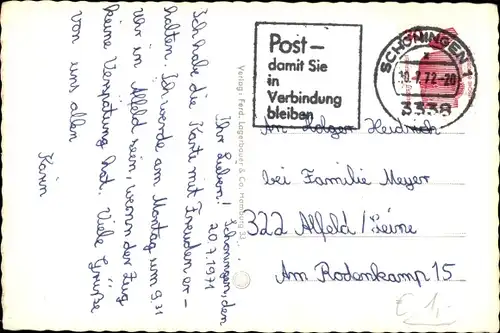 Schöningen, den
20.7.1971
Ihr Lieben!
Ich habe die Karte mit Freuden er-
halten. Ich werde am Montag um 9.31
Uhr in Alfeld sein, wenn der Zug
keine Verspätung hat. Viele Grüße
von uns allen
Karin
Verlag: Ferd. Lagerbauer & Co. Hamburg 33
Post–
damit Sie
in
Verbindung
bleiben
SCHÖNINGEN 1
.7.72-20
3338
An Holger Heidrich
bei Familie Meyer
322 Alfeld/Leine
Am Rodenkamp 15
€ 1,-